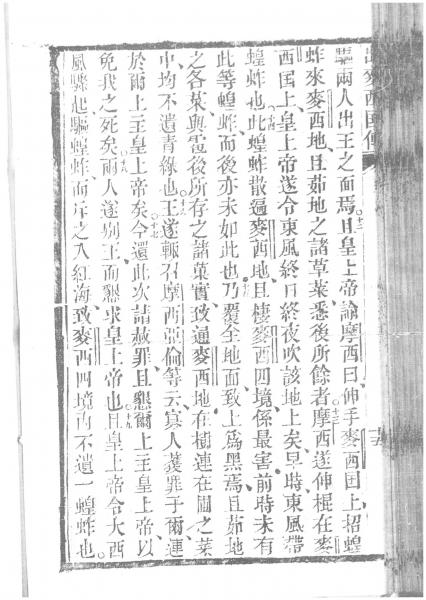 驅兩人出王之面焉十二且皇上帝諭摩西曰伸手麥西囯上招蝗
蚱來麥西地且茹地之諸草萊悉後所餘者十三摩西遂伸棍在麥
西囯上皇上帝遂令東風終日終夜吹該地上矣早時東風帶
蝗蚱也十四此蝗蚱散遍麥西地且棲麥西四境係最害前時未有
此等蝗蚱而後亦未如此也十五乃覆全地面致上爲黑焉且茹地
之各菜與雹後所存之諸菓實致通麥西地在樹連在園之菜
中均不遺青綠也十六王遂輙召摩西亞倫等云寡人獲罪于爾連
於爾上主皇上帝矣十七今還此次請赦罪且懇爾上主皇上帝以
免我之死矣十八兩人遂別王而懇求皇上帝也十九且皇上帝令大西
風驟起驅蝗蚱而斥之入紅海致麥西四境內不遺一蝗蚱也